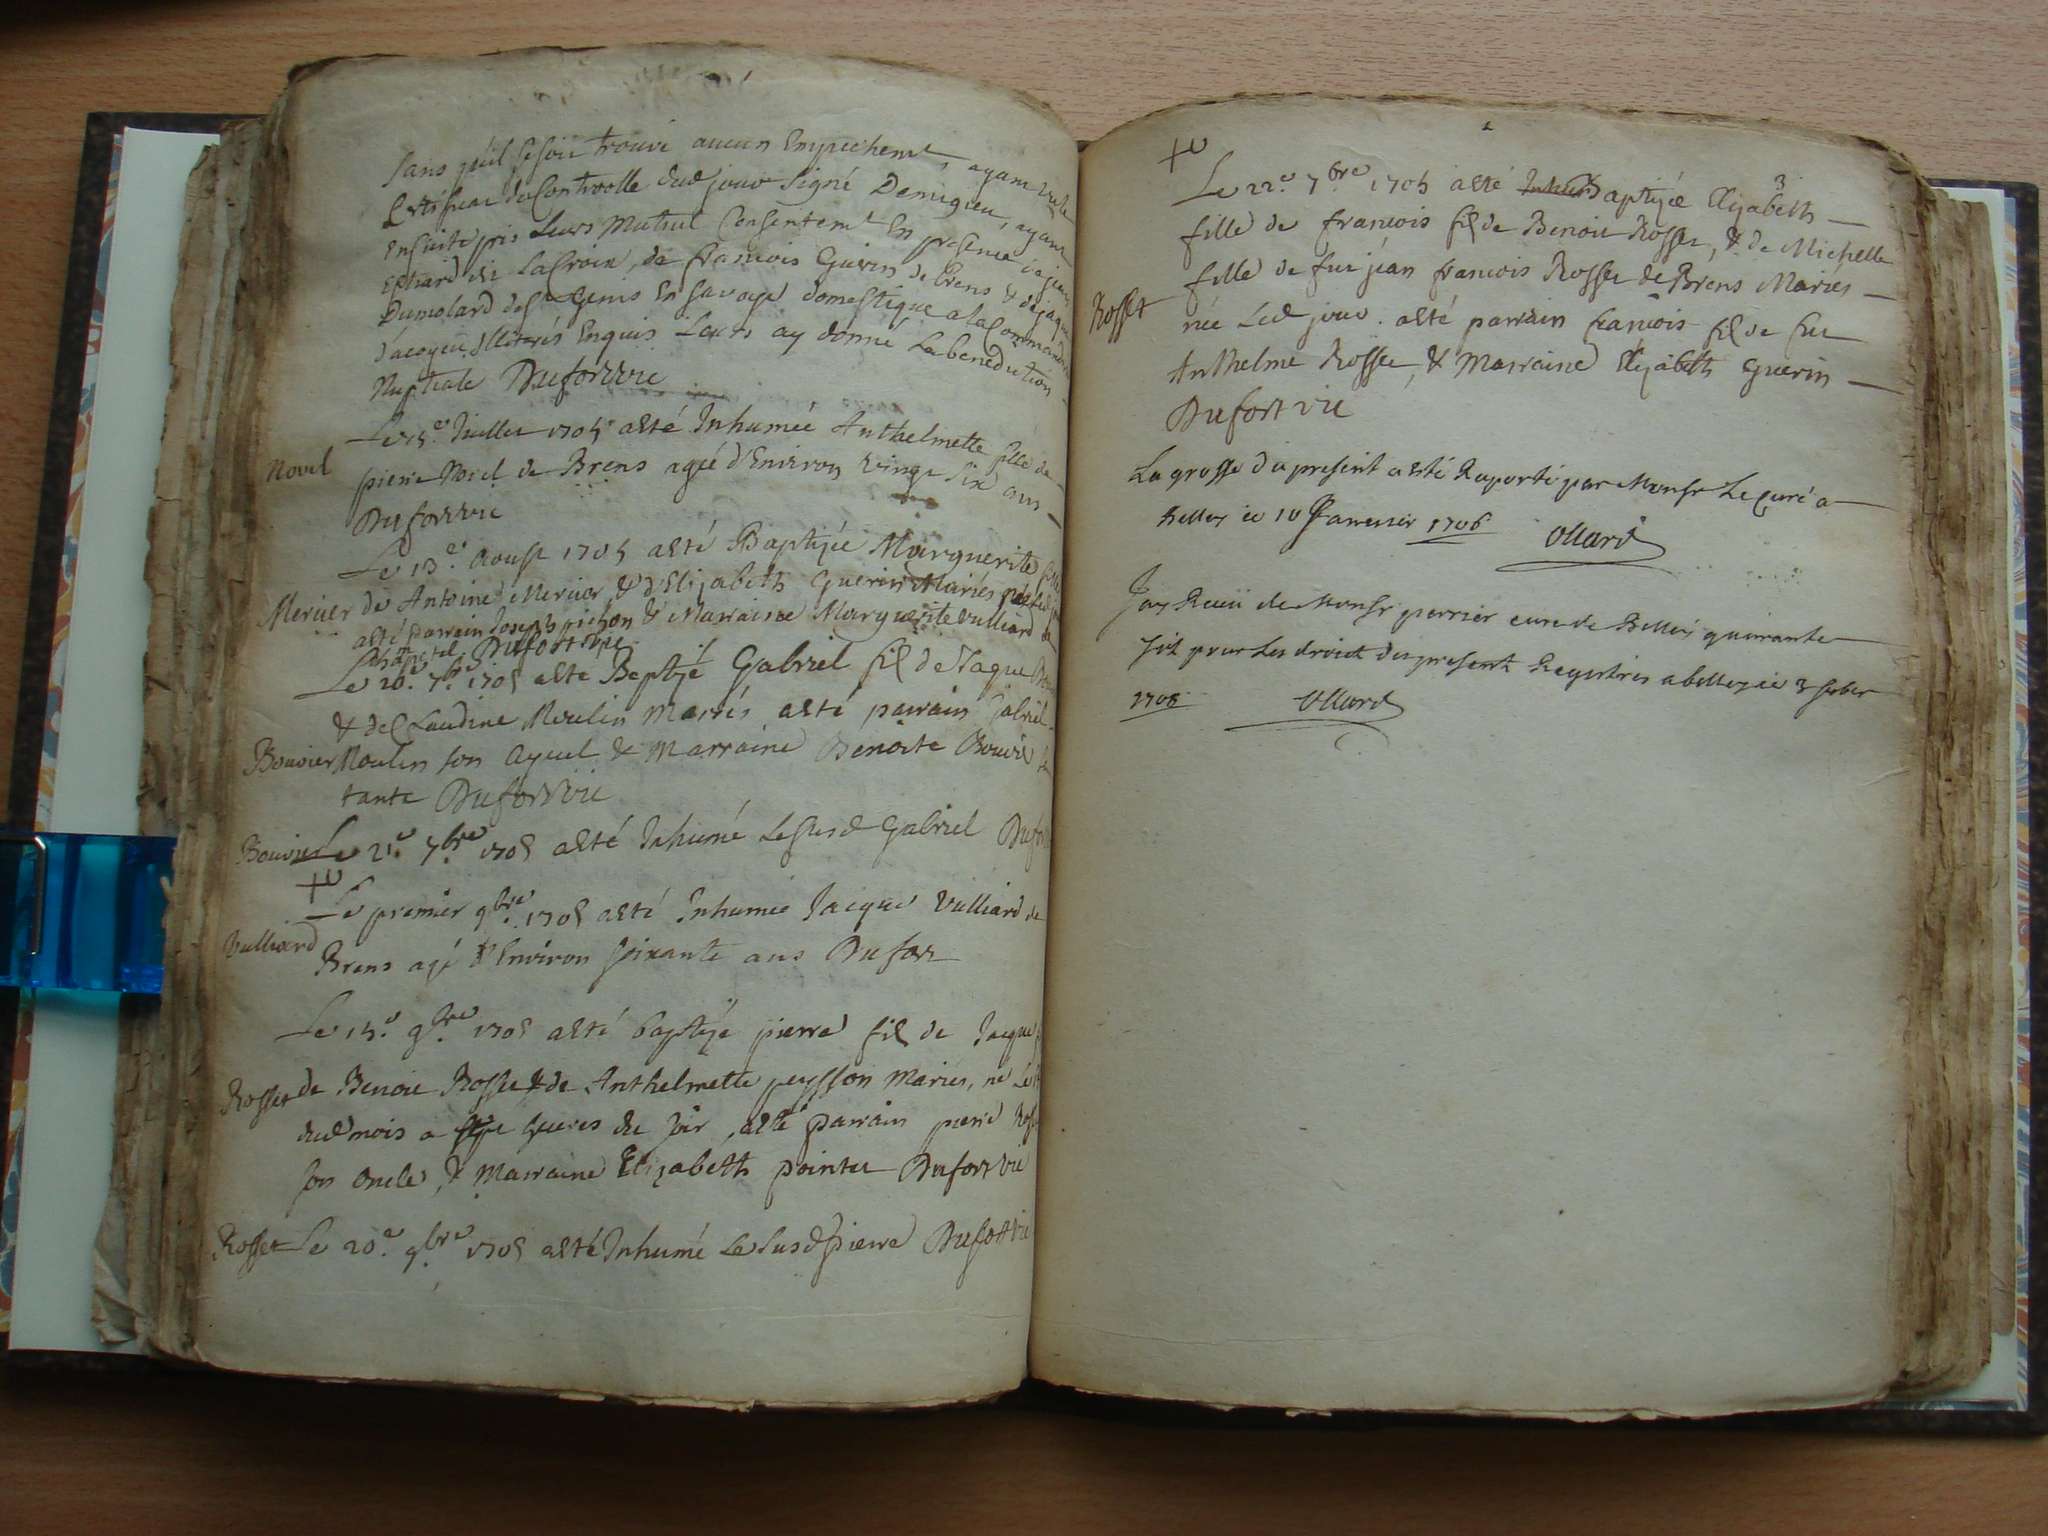 sans quil se soit trouvé aucun Empechemt, ayant
Certificat du Controolle dud jour signé Demigieu, ayant
Ensuite pris Leurs Mutuel Consentemt En presence de
de La Croix, de francois Guerin de Brens & de jaque
Dumolard de St Genis En Savoye domestique a la Commanderie
d'acoyeu Illiterés Enquis Leurs ay donné La benediction
Nuptiale Dufort vic
Le 15.e Juillet 1705 a esté Inhumée Anthelmette fille de
Novel
pierre Novel de Brens agée d'Environ vingt six ans
Dufort vic
Le 13.e Aoust 1705 a esté Baptizée Marguerite fille
Mercier de Antoine Mercier & d'Elizabeth Guerin Mariés née led jour
a esté parrain Joseph pichon & Marraine Marguerite Vulliard de
Dufort vic
Le 20.e 7.bre 1705 a esté Baptizé Gabriel fil de Jaque
& de Claudine Moulin Mariés a esté parrain Gabriel
Bouvier Moulin son Ayeul & Marraine Benoite Bouvier sa
tante Dufort vic
Bouvier Le 21.e 7.bre 1705 a esté Inhumé Le susd Gabriel Dufort
Le premier 9.bre 1705 a esté Inhumée Jacque Vulliard de
Vulliard
Brens agé d'Environ soixante ans Dufort
Le 15.e 9.bre 1705 a esté baptizé pierre fil de Jacque
Rosset de Benoit Rosset & de Anthelmette peysson Mariés, né Le
dud mois a sept heures du soir, a esté parrain pierre Rosset
son oncle, & Marraine Elizabeth pointet Dufort vic
Rosset Le 20.e 9.bre 1705 a esté Inhumé Le susd pierre Dufort vic
3
Le 22.e 7.bre 1705 a esté Baptizée Elizabeth
fille de francois fil de Benoit Rosset, & de Michelle
fille de fut jean francois Rosset de Brens Mariés
Rosset
née Led jour. a esté parrain francois fil de fut
Anthelme Rosset, & Marraine Elizabeth Guerin
Dufort vic
La grosse du present a esté Raporté par Monsr Le curé a
Belley ce 10 Janvier 1706 Ollard
Jay Receü de Monsr perrier cure de Belley quarante
six pour Les droict du present Registres a belley ce 3
1708 Ollard